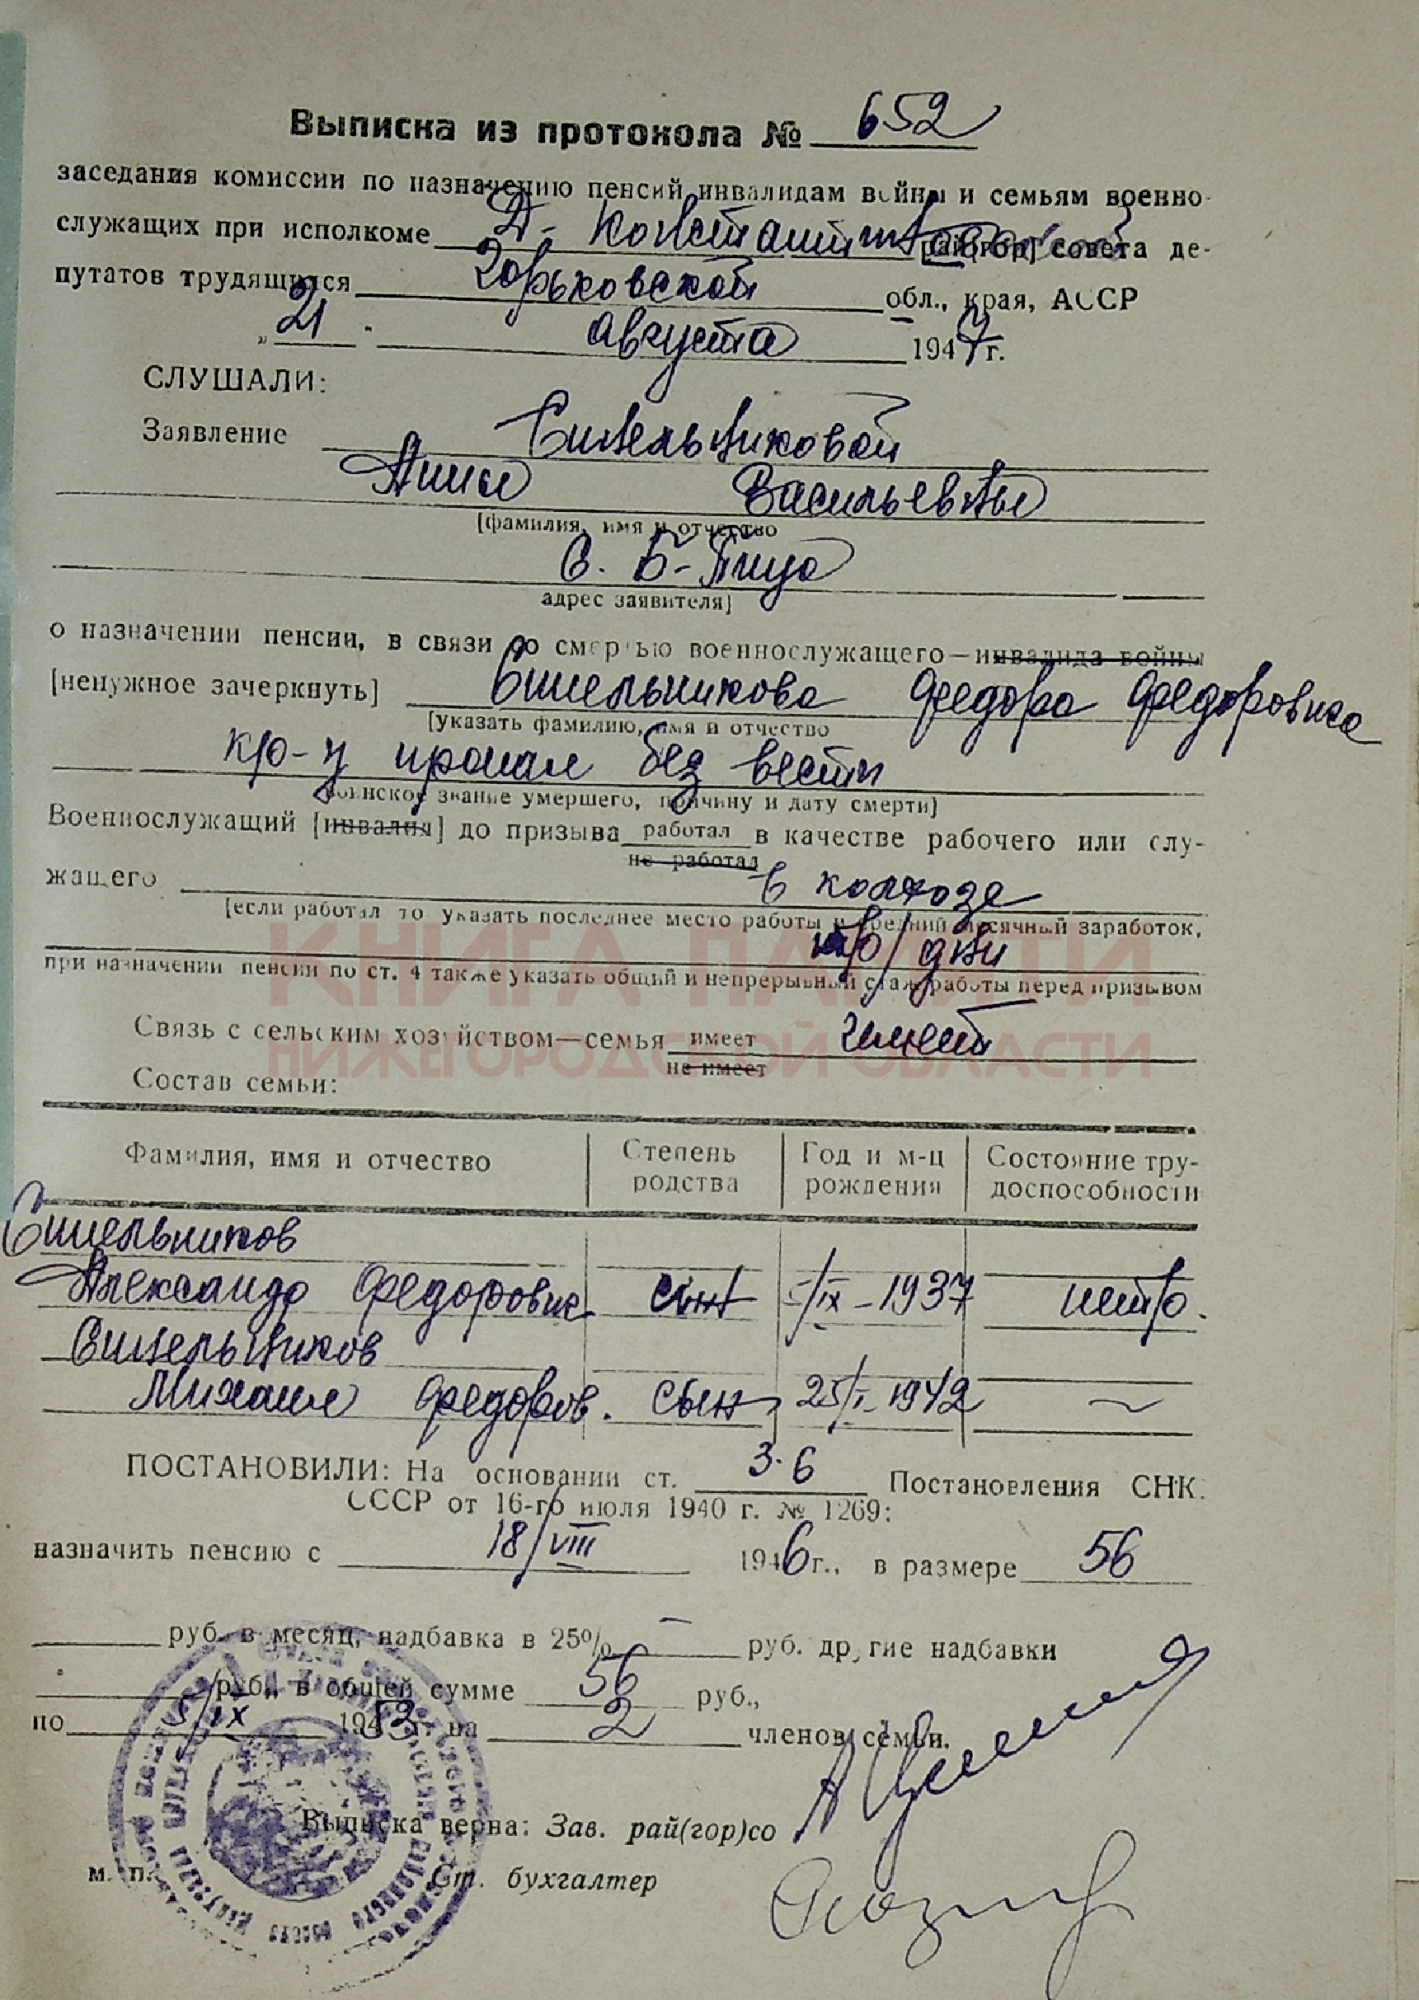 Выписка из протокола № 652
заседания комиссии по назначению пенсий инвалидам войны и семьям военно-
служащих при исполкоме Д-Константиновский рай[гор] совета де-
путатов трудящихся Горьковской обл., края, АССР
„21" августа 1947 г.
СЛУШАЛИ:
Заявление Синельниковой
Анны Васильевны
[фамилия, имя и отчество
С. Б-Пица
адрес заявителя]
о назначении пенсии, в связи со смертью военнослужащего—инвалида войны
[ненужное зачеркнуть] Синельникова Федора Федоровича
[указать фамилию, имя и отчество
кр-ц пропал без вести
воинское звание умершего, причину и дату смерти]
Военнослужащий [инвалид] до призыва работал в качестве рабочего или слу-
не работал
жащего в колхозе
[если работал то указать последнее место работы и средний месячный заработок,
тр/дни
при назначении пенсии по ст. 4 также указать общий и непрерывный стаж работы перед призывом
КНИГА ПАМЯТИ
НИЖЕГОРОДСКОЙ ОБЛАСТИ
Связь с сельским хозяйством—семья имеет имеет
не имеет
Состав семьи:
Фамилия, имя и отчество Степень родства Год и м-ц рождения Состояние тру-
доспособности
Синельников
Александр Федорович сын 5/IX-1937 нетр.
Синельников
Михаил Федоров. сын 25/I-1942 〜
ПОСТАНОВИЛИ: На основании ст. 3-6 Постановления СНК
СССР от 16-го июля 1940 г. № 1269:
назначить пенсию с 18/VIII 1946 г., в размере 56
руб. в месяц, надбавка в 25% — руб. другие надбавки
руб., в общей сумме 56 руб.,
по 5/IX 1953 г. на 2 членов семьи.
Выписка верна: Зав. рай(гор)со
м. п. Ст. бухгалтер